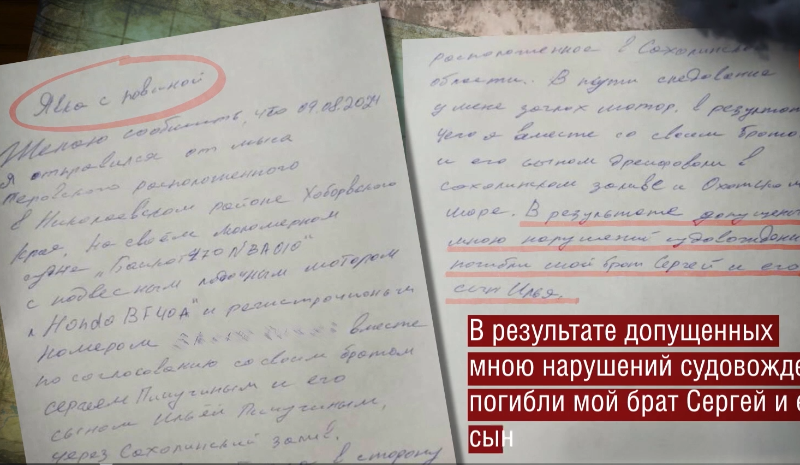 Явка с повиной
Желаю сообщить, что 09.08.2024
Я отправился от мыса
Перовского расположенного
в Николаевском районе Хабаровского
края, на своём маломерном
судне "Баджер470 N
с подвесным лодочным мотором
"Honda BF40A" и регистрационным
номером вместе
по согласованию со своим братом
сергеем Пичугиным и его
сыном Ильёй Пичугиным,
через Сахалинский залив,
в сторону
расположенное в Сахалинской
области. В пути следования
у меня заглох мотор, в результате
чего я вместе со своим братом
и его сыном дрейфовали в
сахалинском заливе и Охотском
море. В результате допущенных
мною нарушений судовождения
погибли мой брат Сергей и его
сын Илья.
В результате допущенных
мною нарушений судовожде
погибли мой брат Сергей и е
сын